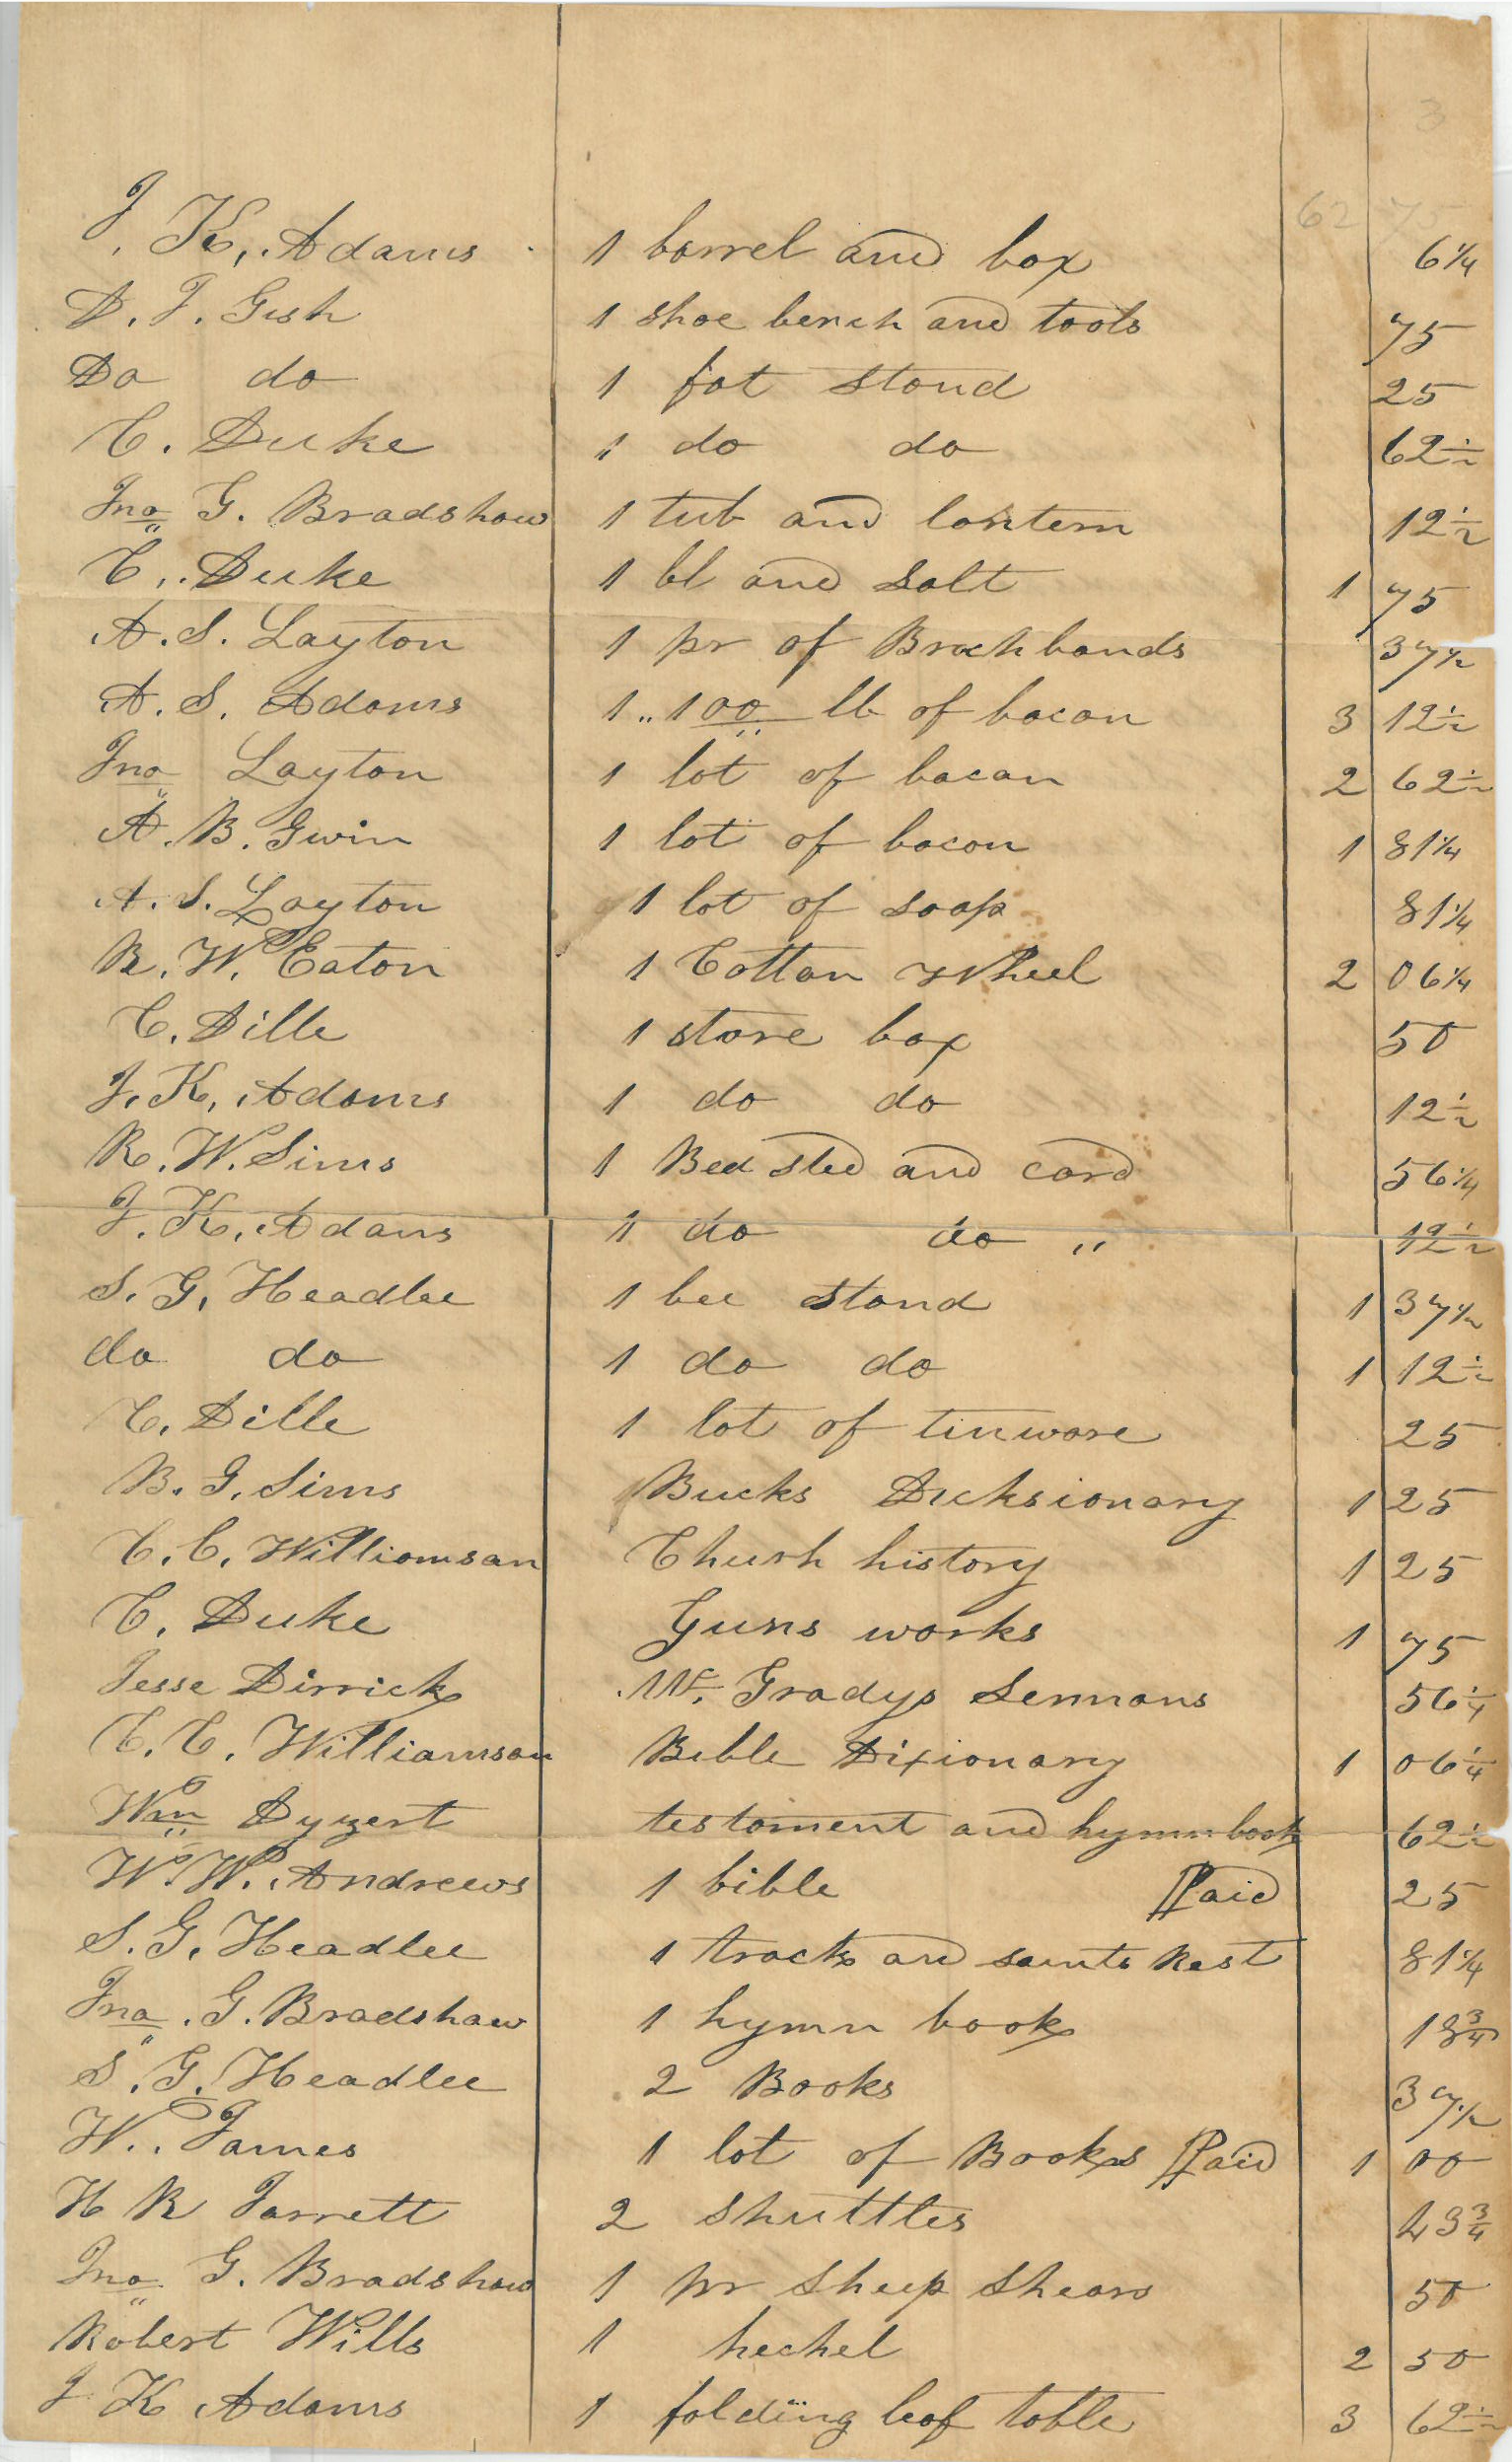 3
62 75
J. K. Adams 1 barrel and box 6 1/4
D. J. Gish 1 shoe bench and tools 75
Do do 1 fat stand 25
C. Duke 1 do do 62 1/2
Jno G. Bradshaw 1 tub and lantern 12 1/2
C. Duke 1 bl and Salt 1 75
A. S. Layton 1 pr of Brechbands 37 1/2
A. S. Adams 1 .. 100 lb of bacon 3 12 1/2
Jno Layton 1 lot of bacan 2 62 1/2
A. B. Gwin 1 lot of bacon 1 81 1/4
A. S. Layton 1 lot of soap 81 1/4
R. W. Eaton 1 Cottan Wheel 2 06 1/4
C. Dille 1 store box 50
J. K. Adams 1 do do 12 1/2
R. W. Sims 1 Bed sted and cord 56 1/4
J. K. Adams 1 do do " 12 1/2
S. G. Headlee 1 bee stand 1 37 1/2
do do 1 do do 1 12 1/2
C. Dille 1 lot of tinware 25
B. G. Sims Bucks Dicksionary 1 25
C. C. Williamsan Chursh history 1 25
C. Duke Guns works 1 75
Jesse Dirrick Gradys Sermons 56 1/4
C. C. Williamson Bible Dixionary 1 06 1/4
Wm Dyzert testament and hymn book 62 1/2
W. W. Andrews 1 bible Paid 25
S. G. Headlee 1 tracts and saints Rest 81 1/4
Jno. G. Bradshaw 1 hymn book 18 3/4
S. G. Headlee 2 Books 37 1/2
W. James 1 lot of Books Paid 1 00
H R Jarrett 2 shuttles 43 3/4
Jno G. Bradshaw 1 pr sheep shears 50
Robert Wills 1 hechel 2 50
J K Adams 1 folding leaf table 3 62 1/2